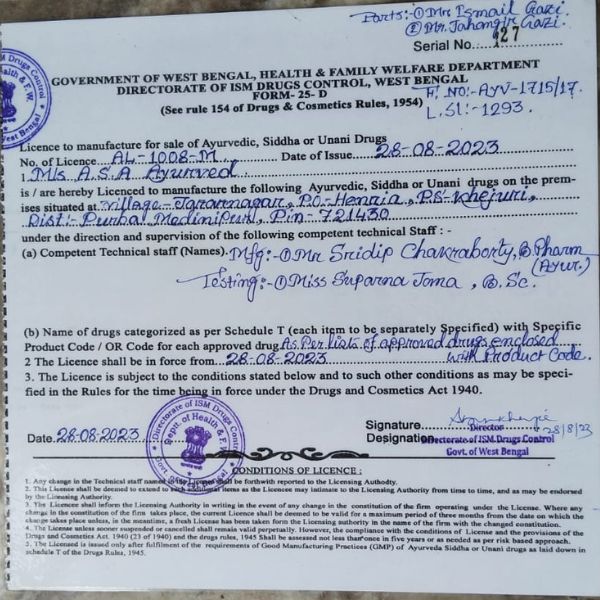 Parts:- ① Mr. Ismail Gazi.
② Mr. Jahangir Gazi.
Serial No. 127
GOVERNMENT OF WEST BENGAL, HEALTH & FAMILY WELFARE DEPARTMENT
DIRECTORATE OF ISM DRUGS CONTROL, WEST BENGAL
FORM- 25- D
F. NO:- AYV-1715/17.
(See rule 154 of Drugs & Cosmetics Rules, 1954)
L. Sl:- 1293.
Licence to manufacture for sale of Ayurvedic, Siddha or Unani Drugs
No. of Licence AL-1008-M Date of Issue 28-08-2023
1. M/s A.S.A Ayurved
is / are hereby Licenced to manufacture the following Ayurvedic, Siddha or Unani drugs on the prem-
ises situated at Village- Jarannagar, P.O- Henria, P.S- Khejuri,
Dist:- Purba Medinipur, Pin- 721430
under the direction and supervision of the following competent technical Staff : -
(a) Competent Technical staff (Names). Mfg:- ① Mr Sridip Chakraborty, B. Pharm
(Ayur.)
Testing:- ① Miss Suparna Jama, B. Sc.
(b) Name of drugs categorized as per Schedule T (each item to be separately Specified) with Specific
Product Code / OR Code for each approved drug As Per lists of approved drugs enclosed
2 The Licence shall be in force from 28-08-2023 with Product Code.
3. The Licence is subject to the conditions stated below and to such other conditions as may be speci-
fied in the Rules for the time being in force under the Drugs and Cosmetics Act 1940.
Signature 28/8/23
Director
Date. 28.08.2023 Designation Directorate of ISM Drugs Control
Govt. of West Bengal
Directorate of ISM Drugs Control
Deptt. of Health & F.W.
CONDITIONS OF LICENCE :
1. Any change in the Technical staff named shall be forthwith reported to the Licensing Authodty.
2. This Licence shall be deemed to extend to such additional items as the Licencee may intimate to the Licensing Authority from time to time, and as may be endorsed
by the Licensing Authority.
3. The Licencee shall inform the Licensing Authority in writing in the event of any change in the constitution of the firm operating under the License. Where any
change in the constitution of the firm takes place, the current Licence shall be deemed to be valid for a maximum period of three months from the date on which the
change takes place unless, in the meantime, a fresh License has been taken form the Licensing authority in the name of the firm with the changed constitution.
4. The License unless sooner suspended or cancelled shall remain valid perpetually. However, the compliance with the conditions of License and the provisions of the
Drugs and Cosmetics Act. 1940 (23 of 1940) and the drugs rules, 1945 Shall be assessed not less than once in five years or as needed as per risk based approach.
5. The Licenced is issued only after fulfilment of the requirements of Good Manufacturing Practices (GMP) of Ayurveda Siddha or Unani drugs as laid down in
schedule T of the Drugs Rules, 1945.